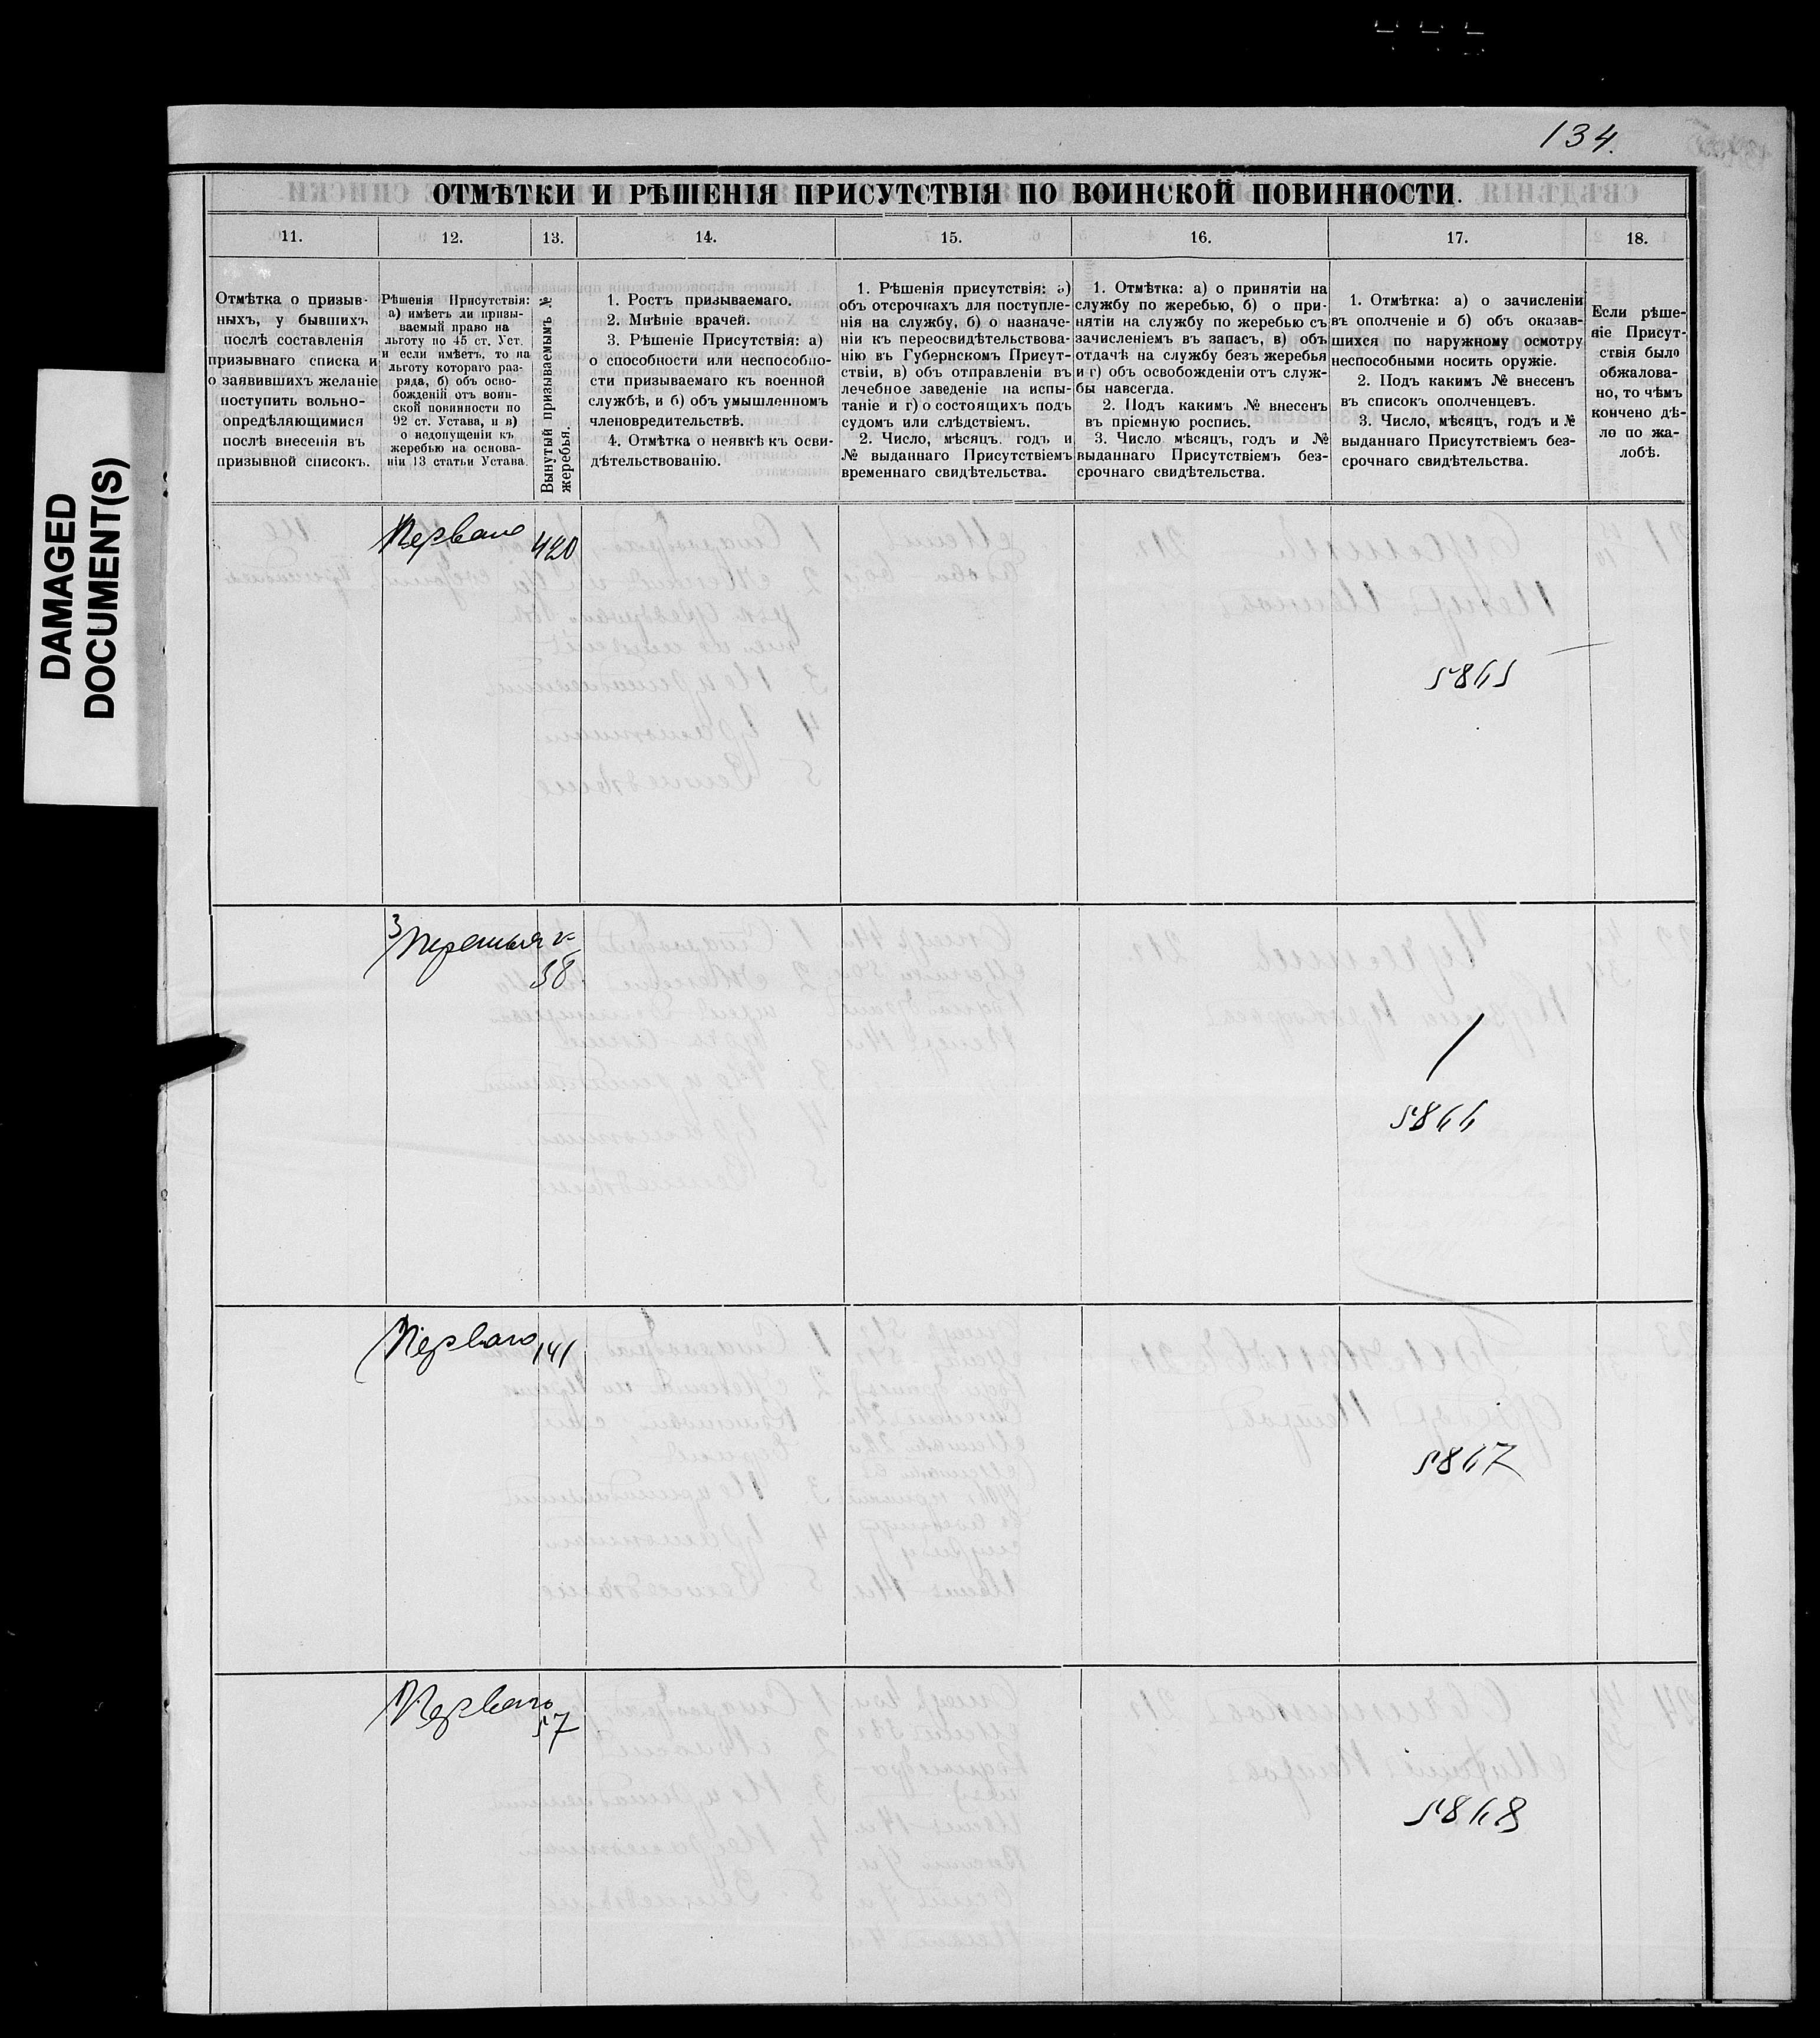 134.
DAMAGED
DOCUMENT(S)
ОТМѢТКИ И РѢШЕНІЯ ПРИСУТСТВІЯ ПО ВОИНСКОЙ ПОВИННОСТИ.
11.
12.
13.
14.
15.
16.
17.
18.
Отмѣтка о призыв-
ныхъ, у бывшихъ
послѣ составленія
призывнаго списка и
о заявившихъ желаніе
поступить вольно-
опредѣляющимися
послѣ внесенія въ
призывной списокъ.
Рѣшенія Присутствія:
а) имѣетъ ли призы-
ваемый право на
льготу по 45 ст. Уст.
и если имѣетъ, то на
льготу котораго раз-
ряда, б) объ осво-
божденіи отъ воин-
ской повинности по
92 ст. Устава, и в)
о недопущеніи къ
жеребью на основа-
ніи 13 статьи Устава.
Вынутый призываемымъ №
жеребья.
1. Ростъ призываемаго.
2. Мнѣніе врачей.
3. Рѣшеніе Присутствія: а)
о способности или неспособно-
сти призываемаго къ военной
службѣ, и б) объ умышленномъ
членовредительствѣ.
4. Отмѣтка о неявкѣ къ осви-
дѣтельствованію.
1. Рѣшенія присутствія: а)
объ отсрочкахъ для поступле-
нія на службу, б) о назначе-
ніи къ переосвидѣтельствова-
нію въ Губернскомъ Присут-
ствіи, в) объ отправленіи въ
лечебное заведеніе на испы-
таніе и г) о состоящихъ подъ
судомъ или слѣдствіемъ.
2. Число, мѣсяцъ. годъ и
№ выданнаго Присутствіемъ
временнаго свидѣтельства.
1. Отмѣтка: а) о принятіи на
службу по жеребью, б) о при-
нятіи на службу по жеребью съ
зачисленіемъ въ запасъ, в) объ
отдачѣ на службу безъ жеребья
и г) объ освобожденіи отъ служ-
бы навсегда.
2. Подъ какимъ № внесенъ
въ пріемную роспись.
3. Число мѣсяцъ, годъ и №
выданнаго Присутствіемъ без-
срочнаго свидѣтельства.
1. Отмѣтка: а) о зачисленіи
въ ополченіе и б) объ оказав-
шихся по наружному осмотру
неспособными носить оружіе.
2. Подъ какимъ № внесенъ
въ списокъ ополченцевъ.
3. Число, мѣсяцъ, годъ и №
выданнаго Присутствіемъ без-
срочнаго свидѣтельства.
Если рѣше-
ніе Присут-
ствія было
обжалова-
но, то чѣмъ
кончено дѣ-
ло по жа-
лобѣ.
Перваго
420
5865
3
58
5866
Перваго
141
5867
Перваго
57
5868